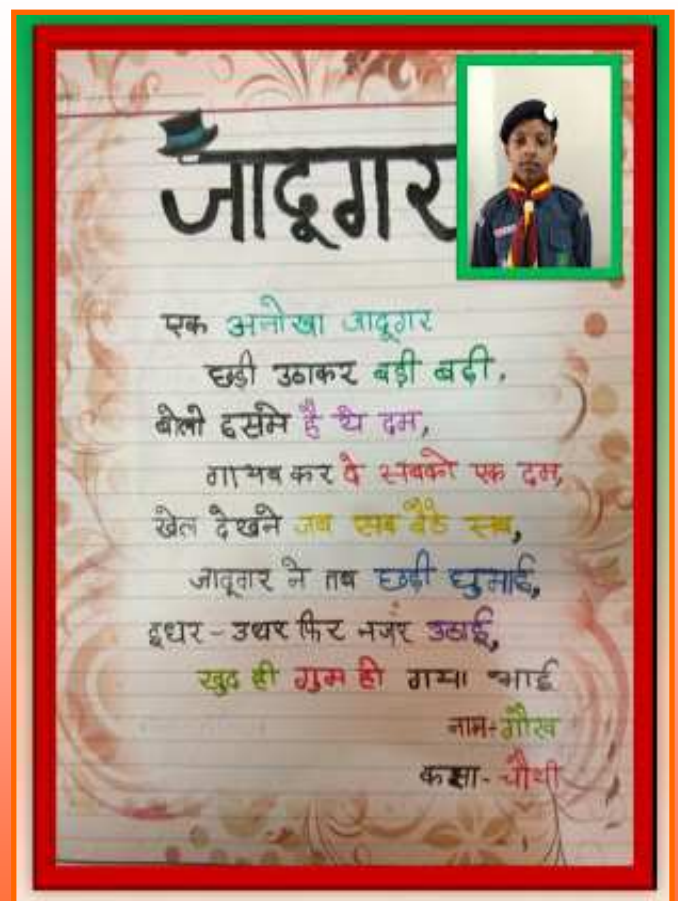 जादूगर
एक अनोखा जादूगर
छडी उठाकर बड़ी बड़ी,
बोलो इसमे है ये दम,
गायब कर दे सबको एक दम,
खेल देखने जब सब बैठे सब,
जादूगर ने तब छड़ी घुमाई,
इधर-उधर फिर नजर उठाई,
खुद ही गुम हो गया भाई
नाम-गौरव
कक्षा-चौथी